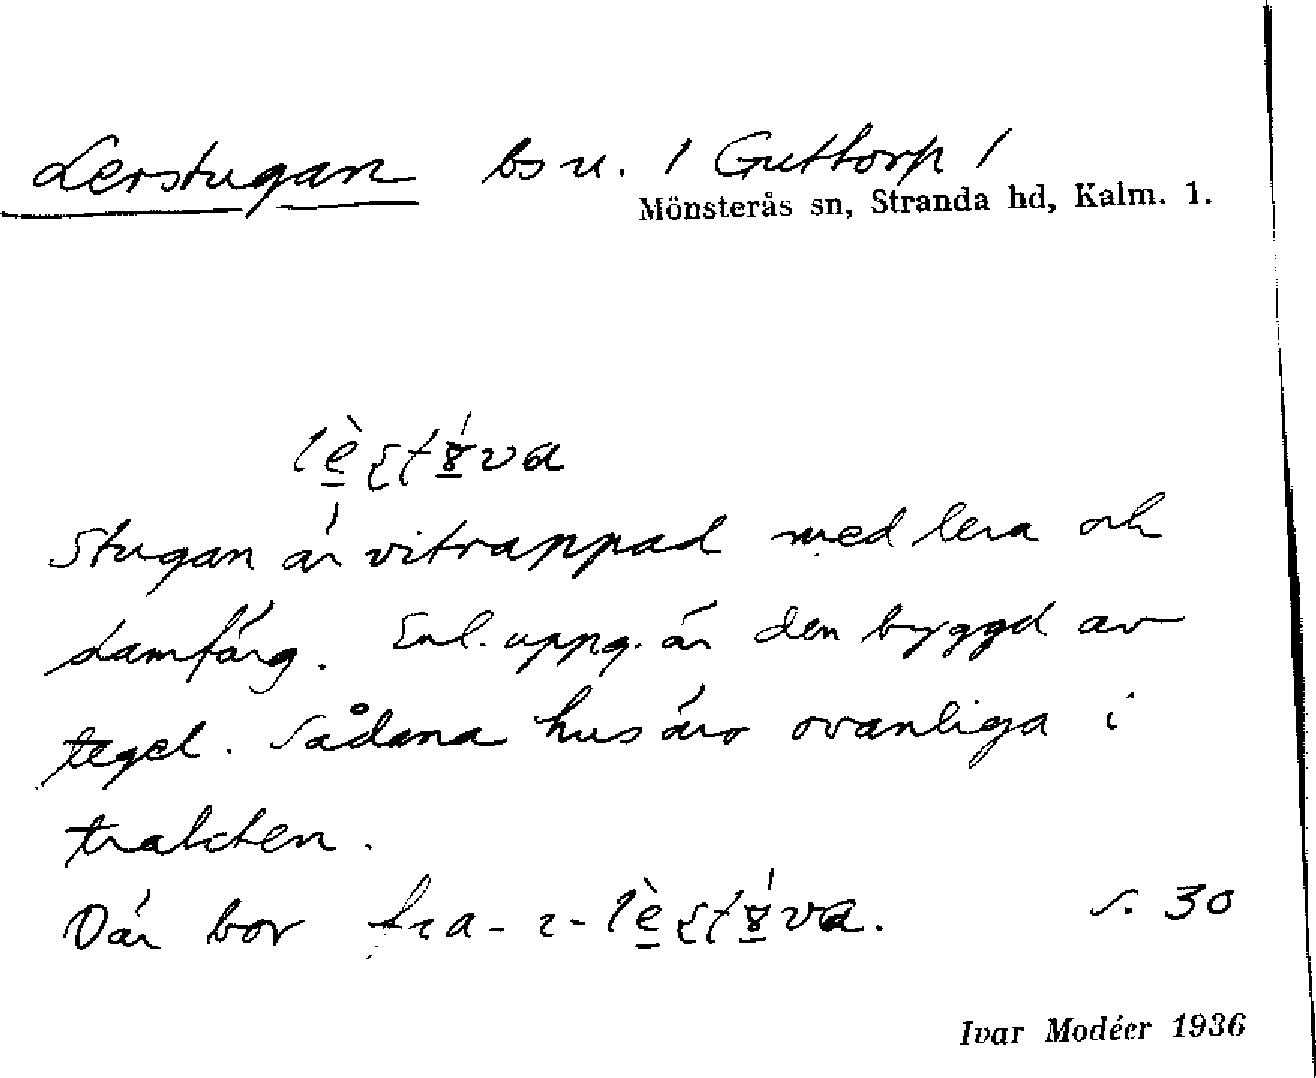 Lerstugan bs u. / Guttorp /
Mönsterås sn, Stranda hd, Kalm. l.
Stugan är vitrappad med lera och
damfärg. Enl. uppg. är den byggd av
tegel. Sådana hus äro ovanliga i
trakten.
Där bor s. 30
Ivar Modéer 1936